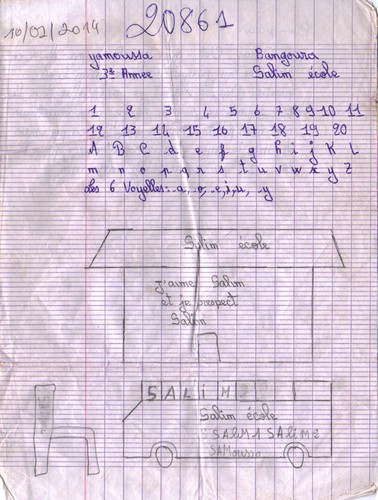 10/02/2014
20861
yamoussa Bangoura
3è Annee Salim école
1 2 3 4 5 6 7 8 9 10 11
12 13 14 15 16 17 18 19 20
A B C d e f g h i j K L
m n o p q r s t u v w x y z
Les 6 Voyelles: a, o, e, i, u, y
Salim école
j'aime Salim
et je respect
Salim
SALIM2
Salim école
SALIM1 SALIM2
SAMoussa